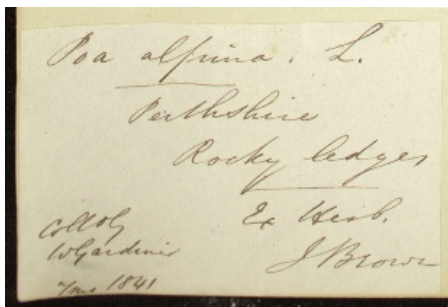 Poa alpina. L.
Perthshire
Rocky ledges
Ex Herb.
J Brown
Coll by
W Gardiner
7mo 1841